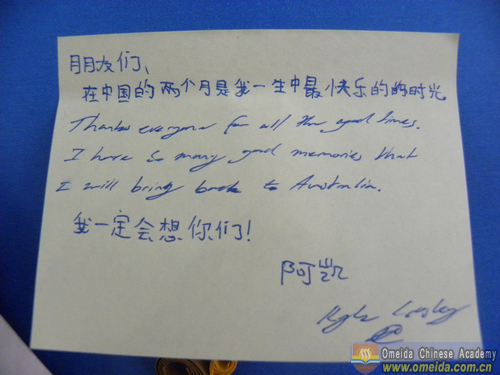 朋友们、
在中国的两个月是我一生中最快乐的的时光
Thanks everyone for all the good times.
I have so many good memories that
I will bring back to Australia.
我一定会想你们!
阿凯
Kyle
Omeida Chinese Academy
www.omeida.com.cn